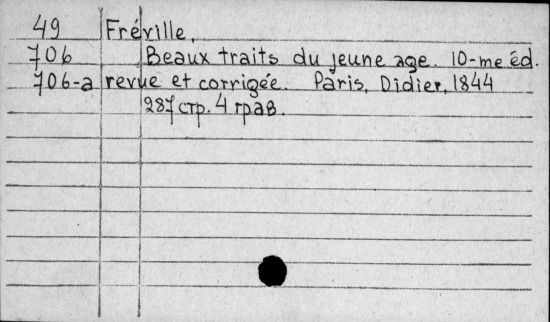 49 Fréville,
706 Beaux traits du jeune age. 10-me éd.
706-a revue et corrigée. Paris, Didier, 1844
287 стр. 4 грав.